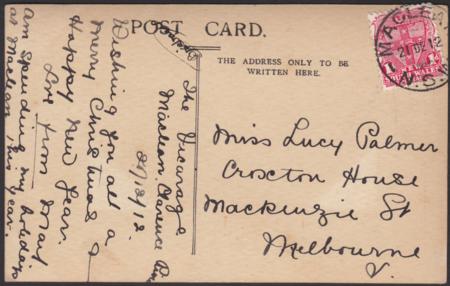 POST CARD.
THE ADDRESS ONLY TO BE
WRITTEN HERE.
MACLEAN
21 DE 12
N.S.W
Miss Lucy Palmer
Croxton House
Mackenzie St
Melbourne
V.
The Vicarage
Maclean. Clarence
21/12/12.
Wishing you all a
Merry Christmas &
Happy New Year.
Love from
Am spending my holidays
at Maclean this year.